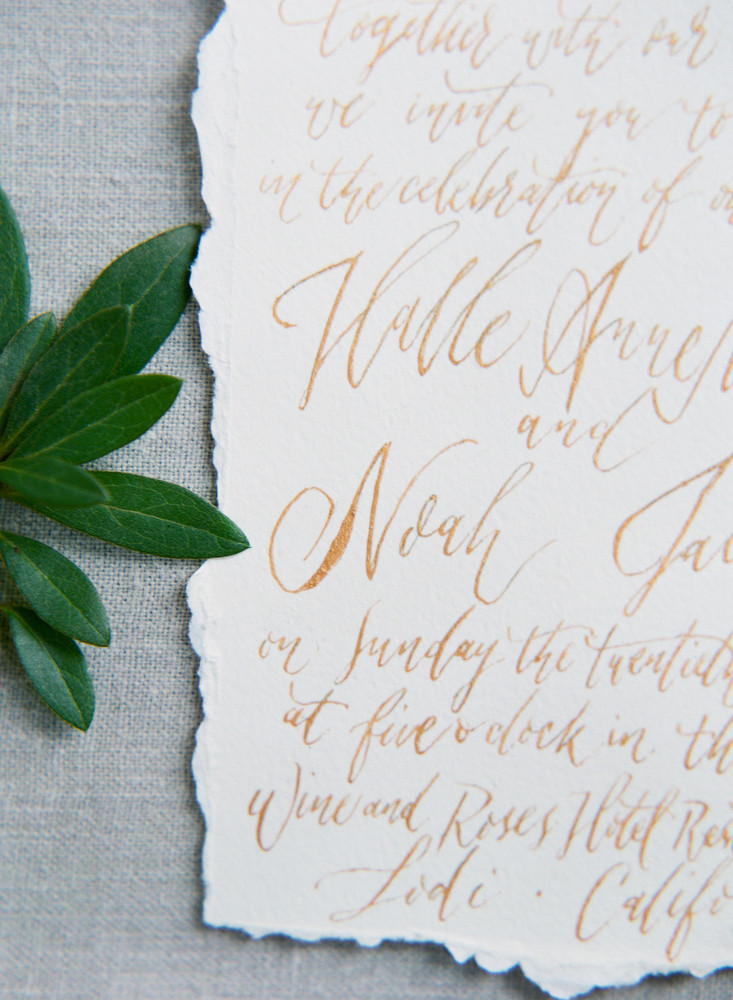 together with our
we invite you to
in the celebration of
Halle Anne
and
Noah
on Sunday the twentieth
at five o'clock in
Wine and Roses Hotel
Lodi ·